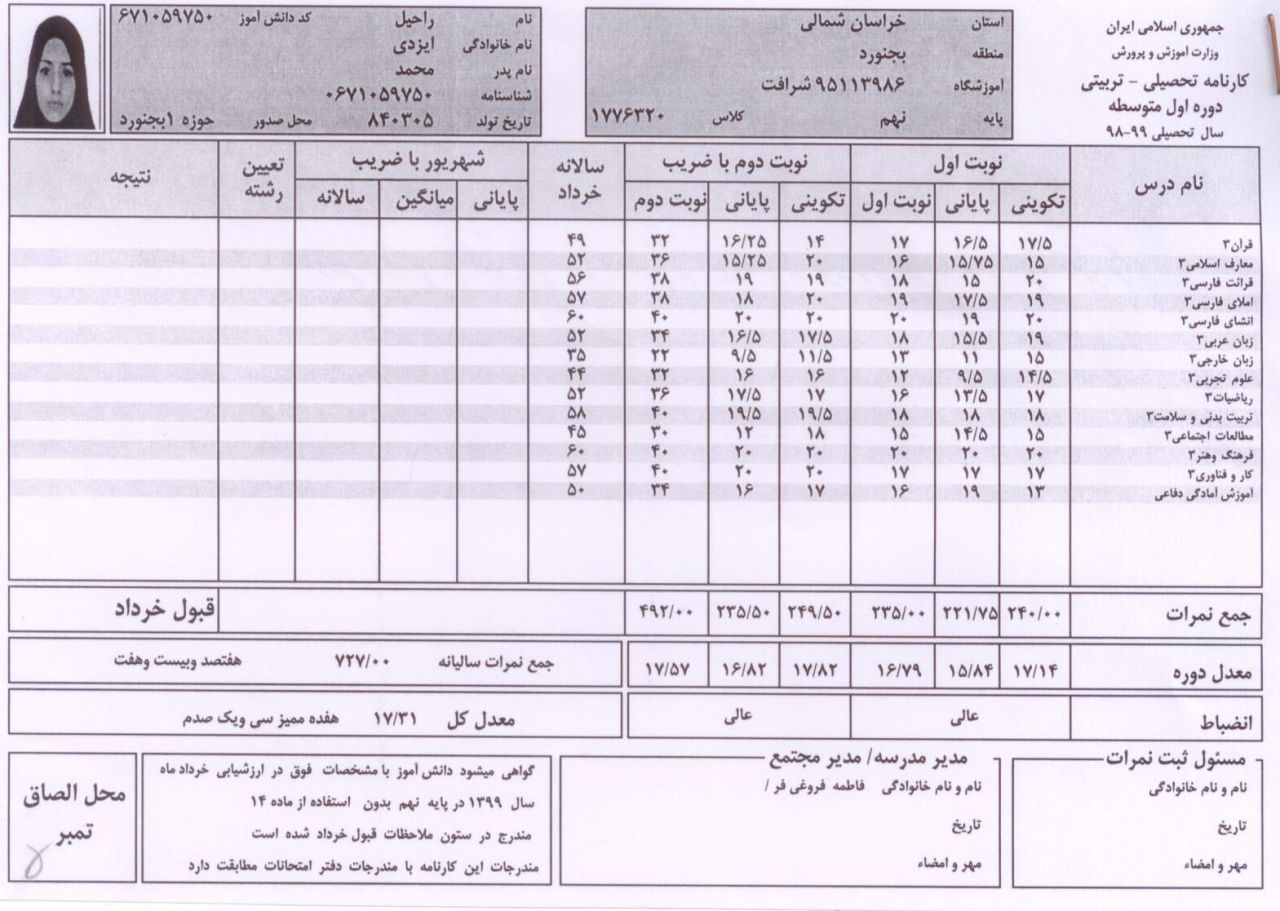 جمهوری اسلامی ایران
وزارت آموزش و پرورش
کارنامه تحصیلی - تربیتی
دوره اول متوسطه
سال تحصیلی ۹۹-۹۸
استان خراسان شمالی
منطقه بجنورد
آموزشگاه ۹۵۱۱۳۹۸۶ شرافت
پایه نهم کلاس ۱۷۷۶۳۲۰
نام راحیل کد دانش آموز ۶۷۱۰۵۹۷۵۰
نام خانوادگی ایزدی
نام پدر محمد
شناسنامه ۰۶۷۱۰۵۹۷۵۰
تاریخ تولد ۸۴۰۳۰۵ محل صدور حوزه ۱بجنورد
نام درس نوبت اول نوبت دوم با ضریب سالانه خرداد شهریور با ضریب تعیین رشته نتیجه
تکوینی پایانی نوبت اول تکوینی پایانی نوبت دوم پایانی میانگین سالانه
قرآن۳ ۱۷/۵ ۱۶/۵ ۱۷ ۱۴ ۱۶/۲۵ ۳۲ ۴۹
معارف اسلامی۳ ۱۵ ۱۵/۷۵ ۱۶ ۲۰ ۱۵/۲۵ ۳۶ ۵۲
قرائت فارسی۳ ۲۰ ۱۵ ۱۸ ۱۹ ۱۹ ۳۸ ۵۶
املای فارسی۳ ۱۹ ۱۷/۵ ۱۹ ۲۰ ۱۸ ۳۸ ۵۷
انشای فارسی۳ ۲۰ ۱۹ ۲۰ ۲۰ ۲۰ ۴۰ ۶۰
زبان عربی۳ ۱۵/۵ ۱۸ ۱۷/۵ ۱۶/۵ ۳۴ ۵۲
زبان خارجی۳ ۱۵ ۱۱ ۱۳ ۱۱/۵ ۹/۵ ۲۲ ۳۵
علوم تجربی۳ ۱۴/۵ ۹/۵ ۱۲ ۱۶ ۱۶ ۳۲ ۴۴
ریاضیات۳ ۱۷ ۱۳/۵ ۱۶ ۱۷ ۱۷/۵ ۳۶ ۵۲
تربیت بدنی و سلامت۳ ۱۹/۵ ۱۹/۵ ۴۰ ۵۸
مطالعات اجتماعی۳ ۱۵ ۱۴/۵ ۱۵ ۱۸ ۱۲ ۳۰ ۴۵
فرهنگ وهنر۳ ۲۰ ۲۰ ۲۰ ۲۰ ۲۰ ۴۰ ۶۰
کار و فناوری۳ ۱۷ ۱۷ ۱۷ ۲۰ ۲۰ ۴۰ ۵۷
آموزش آمادگی دفاعی ۱۳ ۱۹ ۱۶ ۱۷ ۱۶ ۳۴ ۵۰
جمع نمرات ۲۴۰/۰۰ ۲۲۱/۷۵ ۲۳۵/۰۰ ۲۴۹/۵۰ ۲۳۵/۵۰ ۴۹۲/۰۰ قبول خرداد
معدل دوره ۱۷/۱۴ ۱۵/۸۴ ۱۶/۷۹ ۱۷/۸۲ ۱۶/۸۲ ۱۷/۵۷ جمع نمرات سالیانه ۷۲۷/۰۰ هفتصد وبیست وهفت
انضباط عالی عالی معدل کل ۱۷/۳۱ هفده ممیز سی ویک صدم
مسئول ثبت نمرات
نام و نام خانوادگی
تاریخ
مهر و امضاء
مدیر مدرسه/ مدیر مجتمع
نام و نام خانوادگی فاطمه فروغی فر /
تاریخ
مهر و امضاء
گواهی میشود دانش آموز با مشخصات فوق در ارزشیابی خرداد ماه
سال ۱۳۹۹ در پایه نهم بدون استفاده از ماده ۱۴
مندرج در ستون ملاحظات قبول خرداد شده است
مندرجات این کارنامه با مندرجات دفتر امتحانات مطابقت دارد
محل الصاق
تمبر